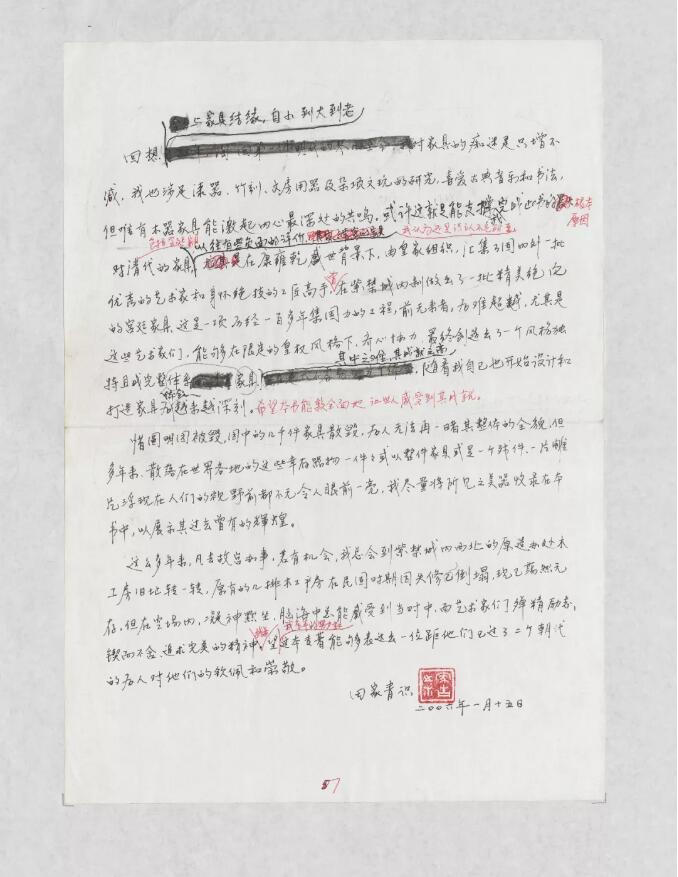 与家具结缘，自小到大到老
回想 对家具的痴迷是只增不
减，我也涉足漆器、竹刻、文房用器及杂项文玩的研究，喜爱古典音乐和书法，
但唯有木器家具能激起内心最深处的共鸣，或许这就是能支撑我完成此书的
原因
以往有些负面的评价
对清代的家具 在康雍乾盛世背景下，由皇家组织，汇集了国内外一批
优秀的艺术家和身怀绝技的工匠高手，在紫禁城内制做出了一批精美绝伦
的宫廷家具，这是一项历经一百多年集国力的工程，前无来者，后难超越，尤其是
这些艺术家们，能够在限定的皇权风格下，齐心协力，最终创造出了一个风格独
特且成完整体系 家具 随着我自己也开始设计和
打造家具 越来越深刻。希望本书能较全面地 让世人感受到其成就。
惜圆明园被毁，园中的几千件家具散毁，后人无法再一睹其整体的全貌，但
多年来，散落在世界各地的这些幸存器物一件件或以整件家具或是一个残件、一片雕
花浮现在人们的视野前都不无令人眼前一亮，我尽量将所见之美器收录在本
书中，以展示其过去曾有的辉煌。
这么多年来，凡去故宫办事，若有机会，我总会到紫禁城内西北的原造办处木
工房旧址转一转，原有的几排木工房在民国时期因失修已倒塌，现已荡然无
存，但在空场内，凝神默坐，脑海中总能感受到当时中、西艺术家们殚精励志，
锲而不舍、追求完美的精神，望这本专著能够表达出一位距他们已过了二个朝代
的后人对他们的钦佩和崇敬。
田家青识
二〇〇六年一月十五日
57